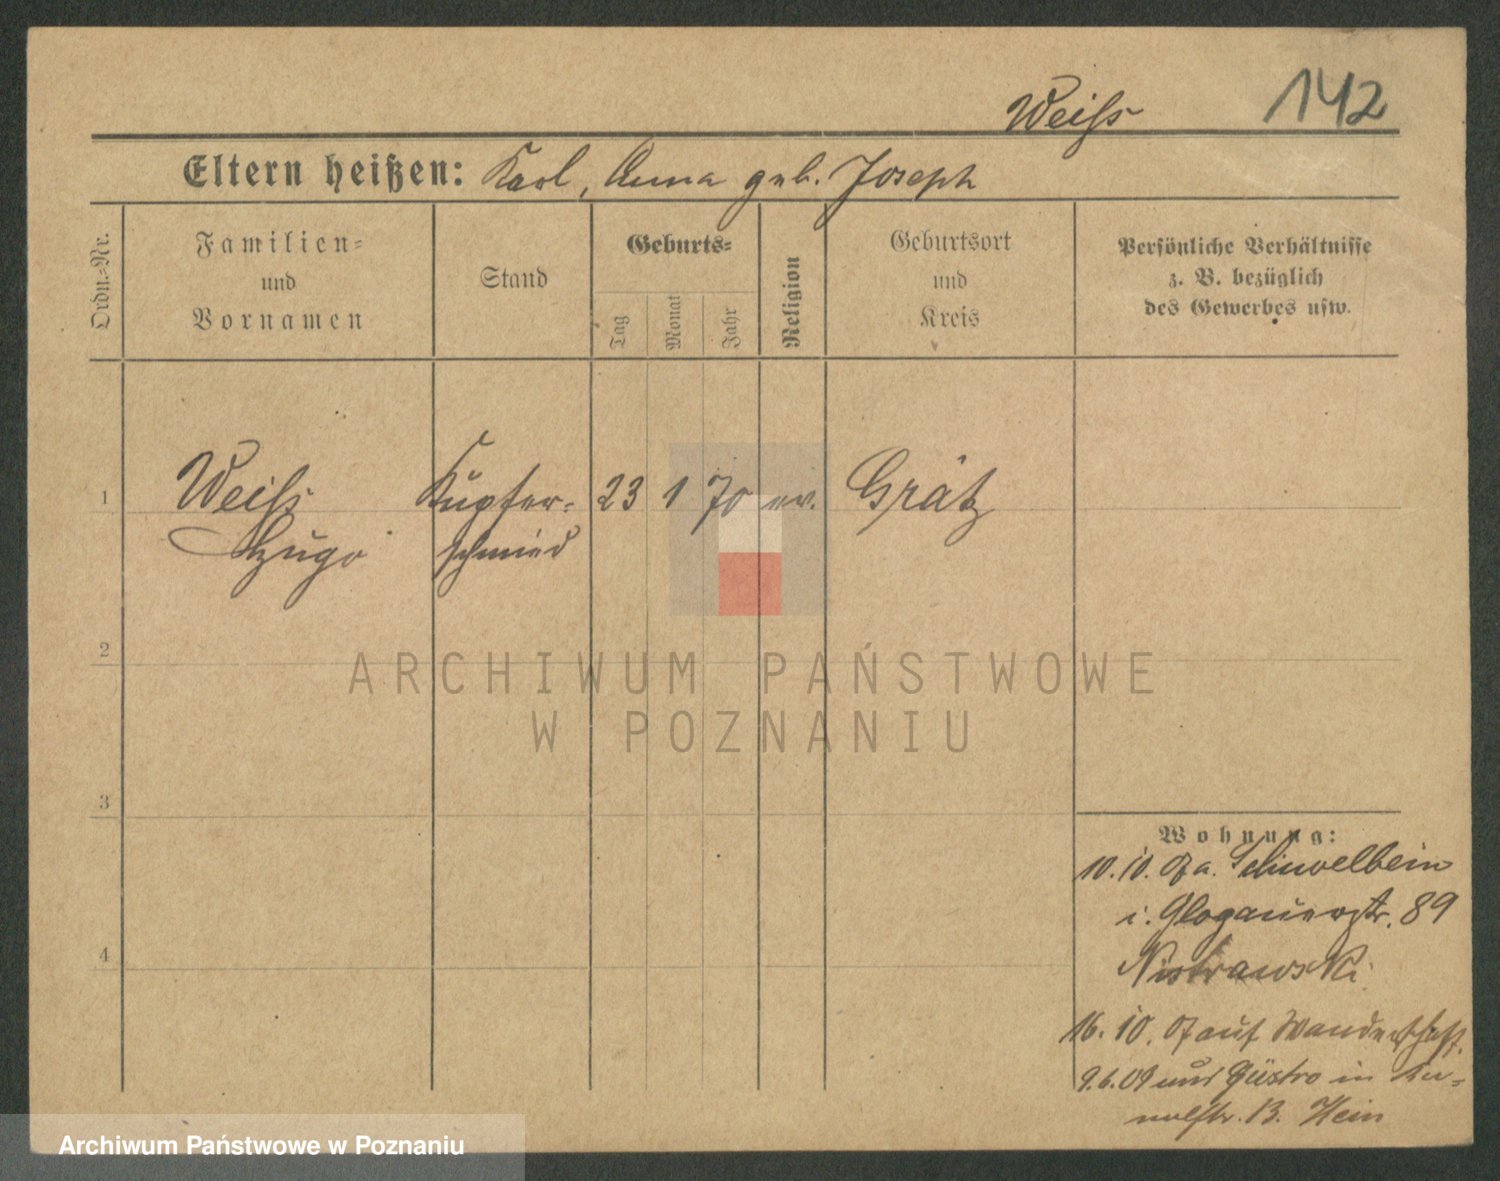 142
Weiß
Eltern heißen: Karl, Anna geb. Joseph
Ordn.-Nr.
Familien-
und
Vornamen
Stand
Geburts-
Tag
Monat
Jahr
Religion
Geburtsort
und
Kreis
Persönliche Verhältnisse
z. B. bezüglich
des Gewerbes usw.
1 Weiß Kupfer- 23 1 70 ev. Grätz
Hugo schmied
2
3
4
Wohnung:
10.10. 07 a. Schivelbein
i. Glogauerstr. 89
16. 10. 07 auf Wanderschaft.
9.6.09 in
13. Hein
ARCHIWUM PAŃSTWOWE
W POZNANIU
Archiwum Państwowe w Poznaniu